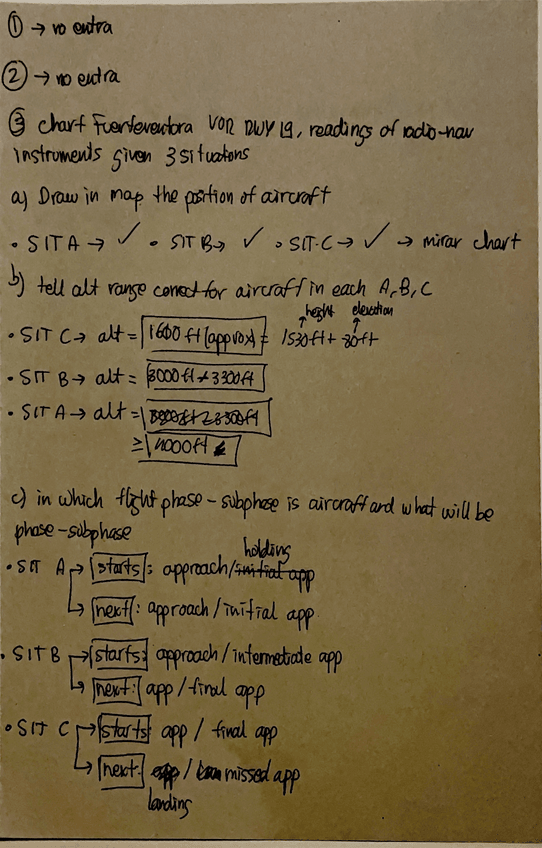 ① → no entra
② → no entra
③ Chart Fuerteventora VOR RWY 19, readings of radio-nav
instruments given 3 situations
a) Draw in map the position of aircraft
• SIT A → ✓ • SIT B → ✓ • SIT C → ✓ → mirar chart
b) tell alt range correct for aircraft in each A, B, C
height elevation
• SIT C → alt = 1600 ft (approx) = 1530ft +
• SIT B → alt = 3000ft 3300ft
• SIT A → alt =
≥ 4000ft
c) in which flight phase - subphase is aircraft and what will be
phase - subphase
holding
• SIT A → starts: approach/initial app
→ next: approach/initial app
• SIT B → starts: approach/intermediate app
→ next: app/final app
• SIT C → starts: app / final app
→ next: app / missed app
landing